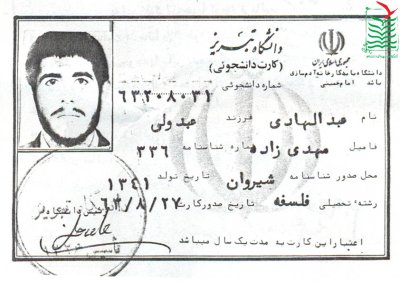 دانشگاه تبریز
(کارت دانشجوئی)
جمهوری اسلامی ایران
شماره دانشجوئی
۶۳۲۰۸۰۳۱
نام عبدالهادی فرزند عبدولی
فامیل مهدی زاده شماره شناسنامه ۳۳۶
محل صدور شناسنامه شیروان تاریخ تولد ۱۳۴۱
رشته تحصیلی فلسفه تاریخ صدور کارت ۶۳/۸/۲۷
اعتبار این کارت به مدت یک سال میباشد